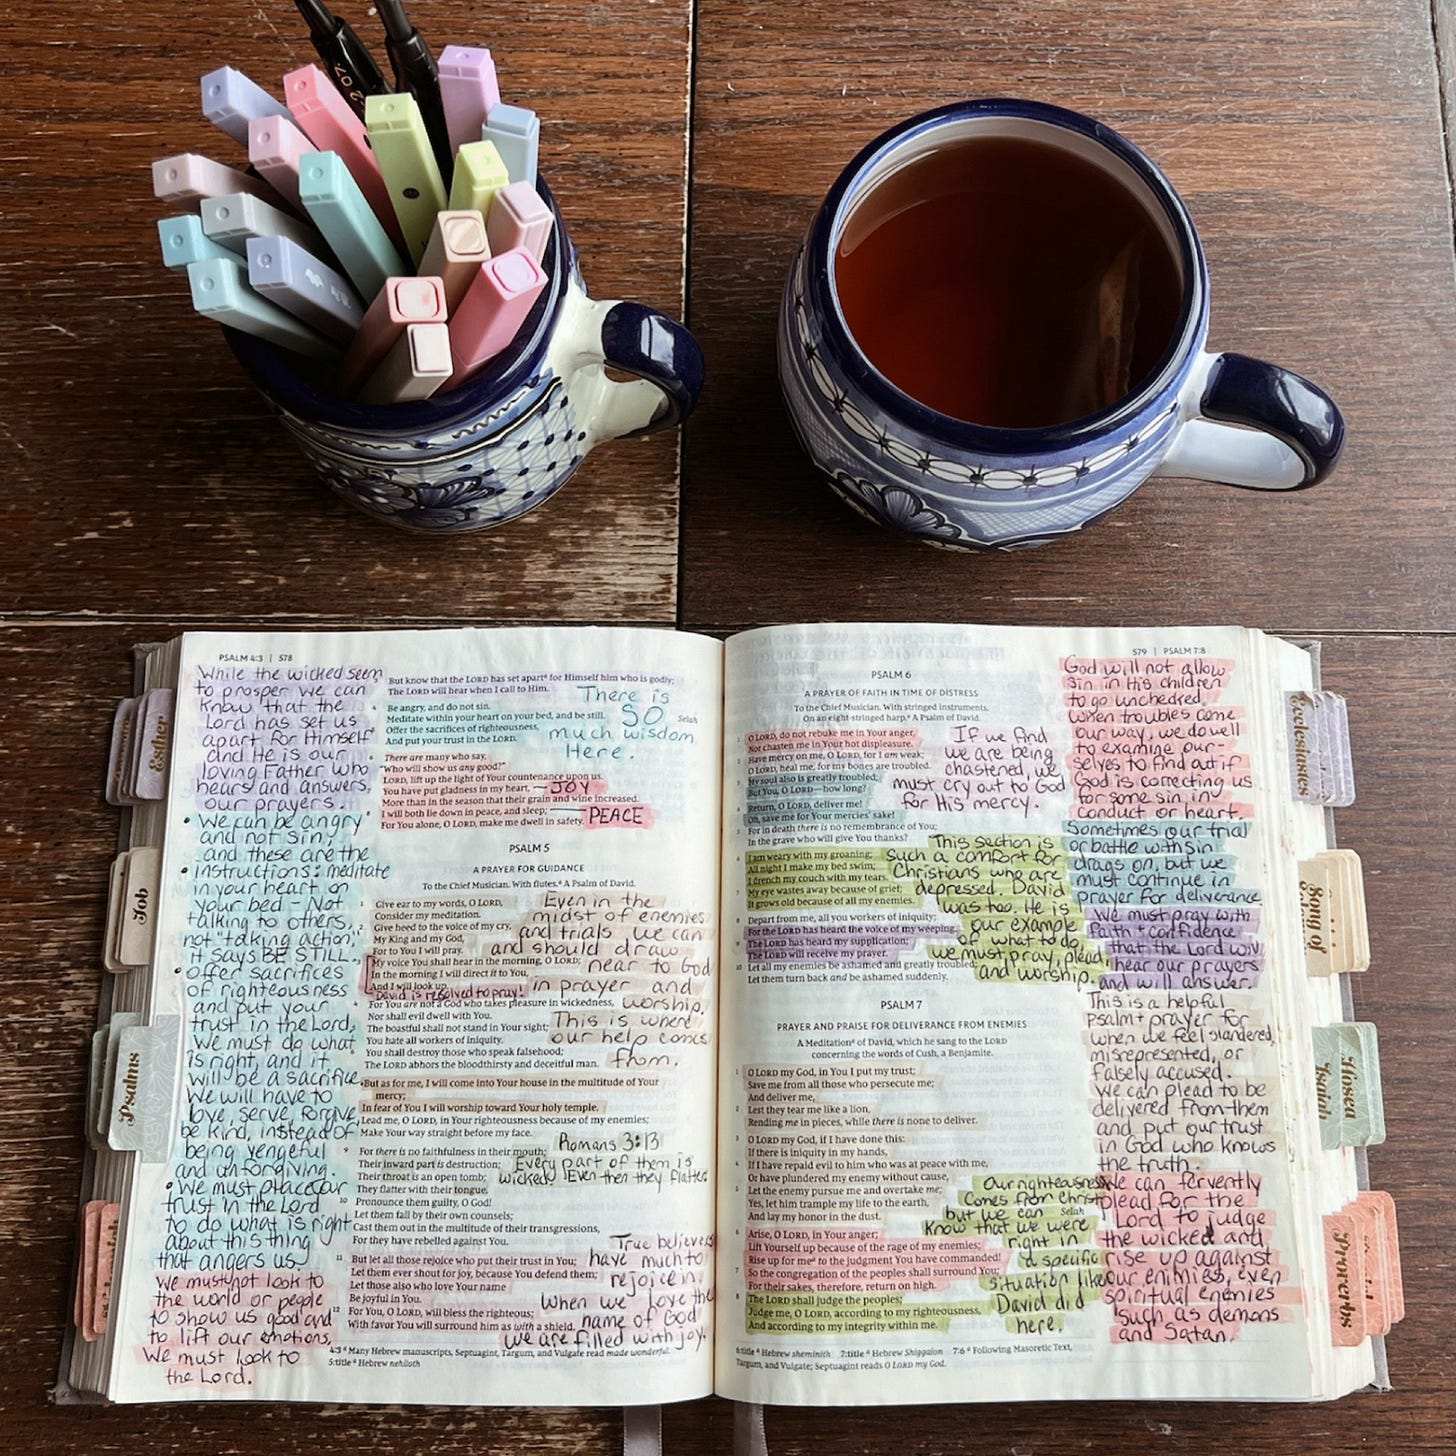 207
PSALM 4:3 | 578
While the wicked seem
to prosper we can
know that the
Lord has set us
apart for Himself
and He is our
loving Father who
hears and answers
our prayers.
• We can be angry
and not sin,
and these are the
• instructions: meditate
in your heart on
your bed - Not
talking to others,
not taking action,
it says BE STILL.
• offer sacrifices
of righteousness
and put your
trust in the Lord,
We must do what
is right, and it
will be a sacrifice.
We will have to
love, serve, forgive
be kind, instead of
being vengeful
and unforgiving.
• We must place our
trust in the Lord
to do what is right
about this thing
that angers us.
We must not look to
the world or people
to show us good and
to lift our emotions,
We must look to
the Lord.
But know that the LORD has set apart a for Himself him who is godly;
The LORD will hear when I call to Him.
There is
SO
much wisdom
Here.
4 Be angry, and do not sin.
Meditate within your heart on your bed, and be still. Selah
5 Offer the sacrifices of righteousness,
And put your trust in the LORD.
6 There are many who say,
"Who will show us any good?"
LORD, lift up the light of Your countenance upon us.
7 You have put gladness in my heart, — JOY
More than in the season that their grain and wine increased.
8 I will both lie down in peace, and sleep; — PEACE
For You alone, O LORD, make me dwell in safety.
PSALM 5
A PRAYER FOR GUIDANCE
To the Chief Musician. With flutes. a A Psalm of David.
1 Give ear to my words, O LORD,
Consider my meditation.
2 Give heed to the voice of my cry,
My King and my God,
For to You I will pray.
3 My voice You shall hear in the morning, O LORD;
In the morning I will direct it to You,
And I will look up.
David is resolved to pray!
Even in the
midst of enemies
and trials we can
and should draw
near to God
in prayer and
worship.
This is where
our help comes
from.
4 For You are not a God who takes pleasure in wickedness,
Nor shall evil dwell with You.
5 The boastful shall not stand in Your sight;
You hate all workers of iniquity.
6 You shall destroy those who speak falsehood;
The LORD abhors the bloodthirsty and deceitful man.
7 But as for me, I will come into Your house in the multitude of Your
mercy;
In fear of You I will worship toward Your holy temple.
8 Lead me, O LORD, in Your righteousness because of my enemies;
Make Your way straight before my face.
9 For there is no faithfulness in their mouth;
Their inward part is destruction;
Their throat is an open tomb;
They flatter with their tongue.
Romans 3:13
Every part of them is
wicked! Even then they flatter.
10 Pronounce them guilty, O God!
Let them fall by their own counsels;
Cast them out in the multitude of their transgressions,
For they have rebelled against You.
11 But let all those rejoice who put their trust in You;
Let them ever shout for joy, because You defend them;
Let those also who love Your name
Be joyful in You.
12 For You, O LORD, will bless the righteous;
With favor You will surround him as with a shield.
True believers
have much to
rejoice in!
When we love the
name of God
we are filled with joy.
4:3 a Many Hebrew manuscripts, Septuagint, Targum, and Vulgate read made wonderful.
5:title a Hebrew nehiloth
579 | PSALM 7:8
PSALM 6
A PRAYER OF FAITH IN TIME OF DISTRESS
To the Chief Musician. With stringed instruments.
On an eight-stringed harp. a A Psalm of David.
1 O LORD, do not rebuke me in Your anger,
Nor chasten me in Your hot displeasure.
2 Have mercy on me, O LORD, for I am weak;
O LORD, heal me, for my bones are troubled.
3 My soul also is greatly troubled;
But You, O LORD—how long?
4 Return, O LORD, deliver me!
Oh, save me for Your mercies' sake!
5 For in death there is no remembrance of You;
In the grave who will give You thanks?
If we find
we are being
chastened, we
must cry out to God
for His mercy.
6 I am weary with my groaning;
All night I make my bed swim;
I drench my couch with my tears.
7 My eye wastes away because of grief;
It grows old because of all my enemies.
This section is
such a comfort for
Christians who are
depressed. David
was too. He is
our example
of what to do,
we must pray, plead,
and worship.
8 Depart from me, all you workers of iniquity;
For the LORD has heard the voice of my weeping.
9 The LORD has heard my supplication;
The LORD will receive my prayer.
10 Let all my enemies be ashamed and greatly troubled;
Let them turn back and be ashamed suddenly.
PSALM 7
PRAYER AND PRAISE FOR DELIVERANCE FROM ENEMIES
A Meditation a of David, which he sang to the LORD
concerning the words of Cush, a Benjamite.
1 O LORD my God, in You I put my trust;
Save me from all those who persecute me;
And deliver me,
2 Lest they tear me like a lion,
Rending me in pieces, while there is none to deliver.
3 O LORD my God, if I have done this:
If there is iniquity in my hands,
4 If I have repaid evil to him who was at peace with me,
Or have plundered my enemy without cause,
5 Let the enemy pursue me and overtake me;
Yes, let him trample my life to the earth,
And lay my honor in the dust. Selah
6 Arise, O LORD, in Your anger;
Lift Yourself up because of the rage of my enemies;
Rise up for me a to the judgment You have commanded!
7 So the congregation of the peoples shall surround You;
For their sakes, therefore, return on high.
8 The LORD shall judge the peoples;
Judge me, O LORD, according to my righteousness,
And according to my integrity within me.
Our righteousness
comes from Christ
but we can
know that we were
right in
a specific
situation like
David did
here.
6:title a Hebrew sheminith 7:title a Hebrew Shiggaion 7:6 a Following Masoretic Text,
Targum, and Vulgate; Septuagint reads O LORD my God.
God will not allow
sin in His children
to go unchecked.
When troubles come
our way, we do well
to examine our-
selves to find out if
God is correcting us
for some sin in
conduct or heart.
Sometimes our trial
or battle with sin
drags on, but we
must continue in
prayer for deliverance
We must pray with
faith + confidence
that the Lord will
hear our prayers
and will answer.
This is a helpful
psalm + prayer for
when we feel slandered,
misrepresented, or
falsely accused.
We can plead to be
delivered from them
and put our trust
in God who knows
the truth.
We can fervently
plead for the
Lord to judge
the wicked and
rise up against
our enimies, even
spiritual enemies
such as demons
and Satan.
Esther
Job
Psalms
Ecclesiastes
Song of
Isaiah
Hosea
Proverbs